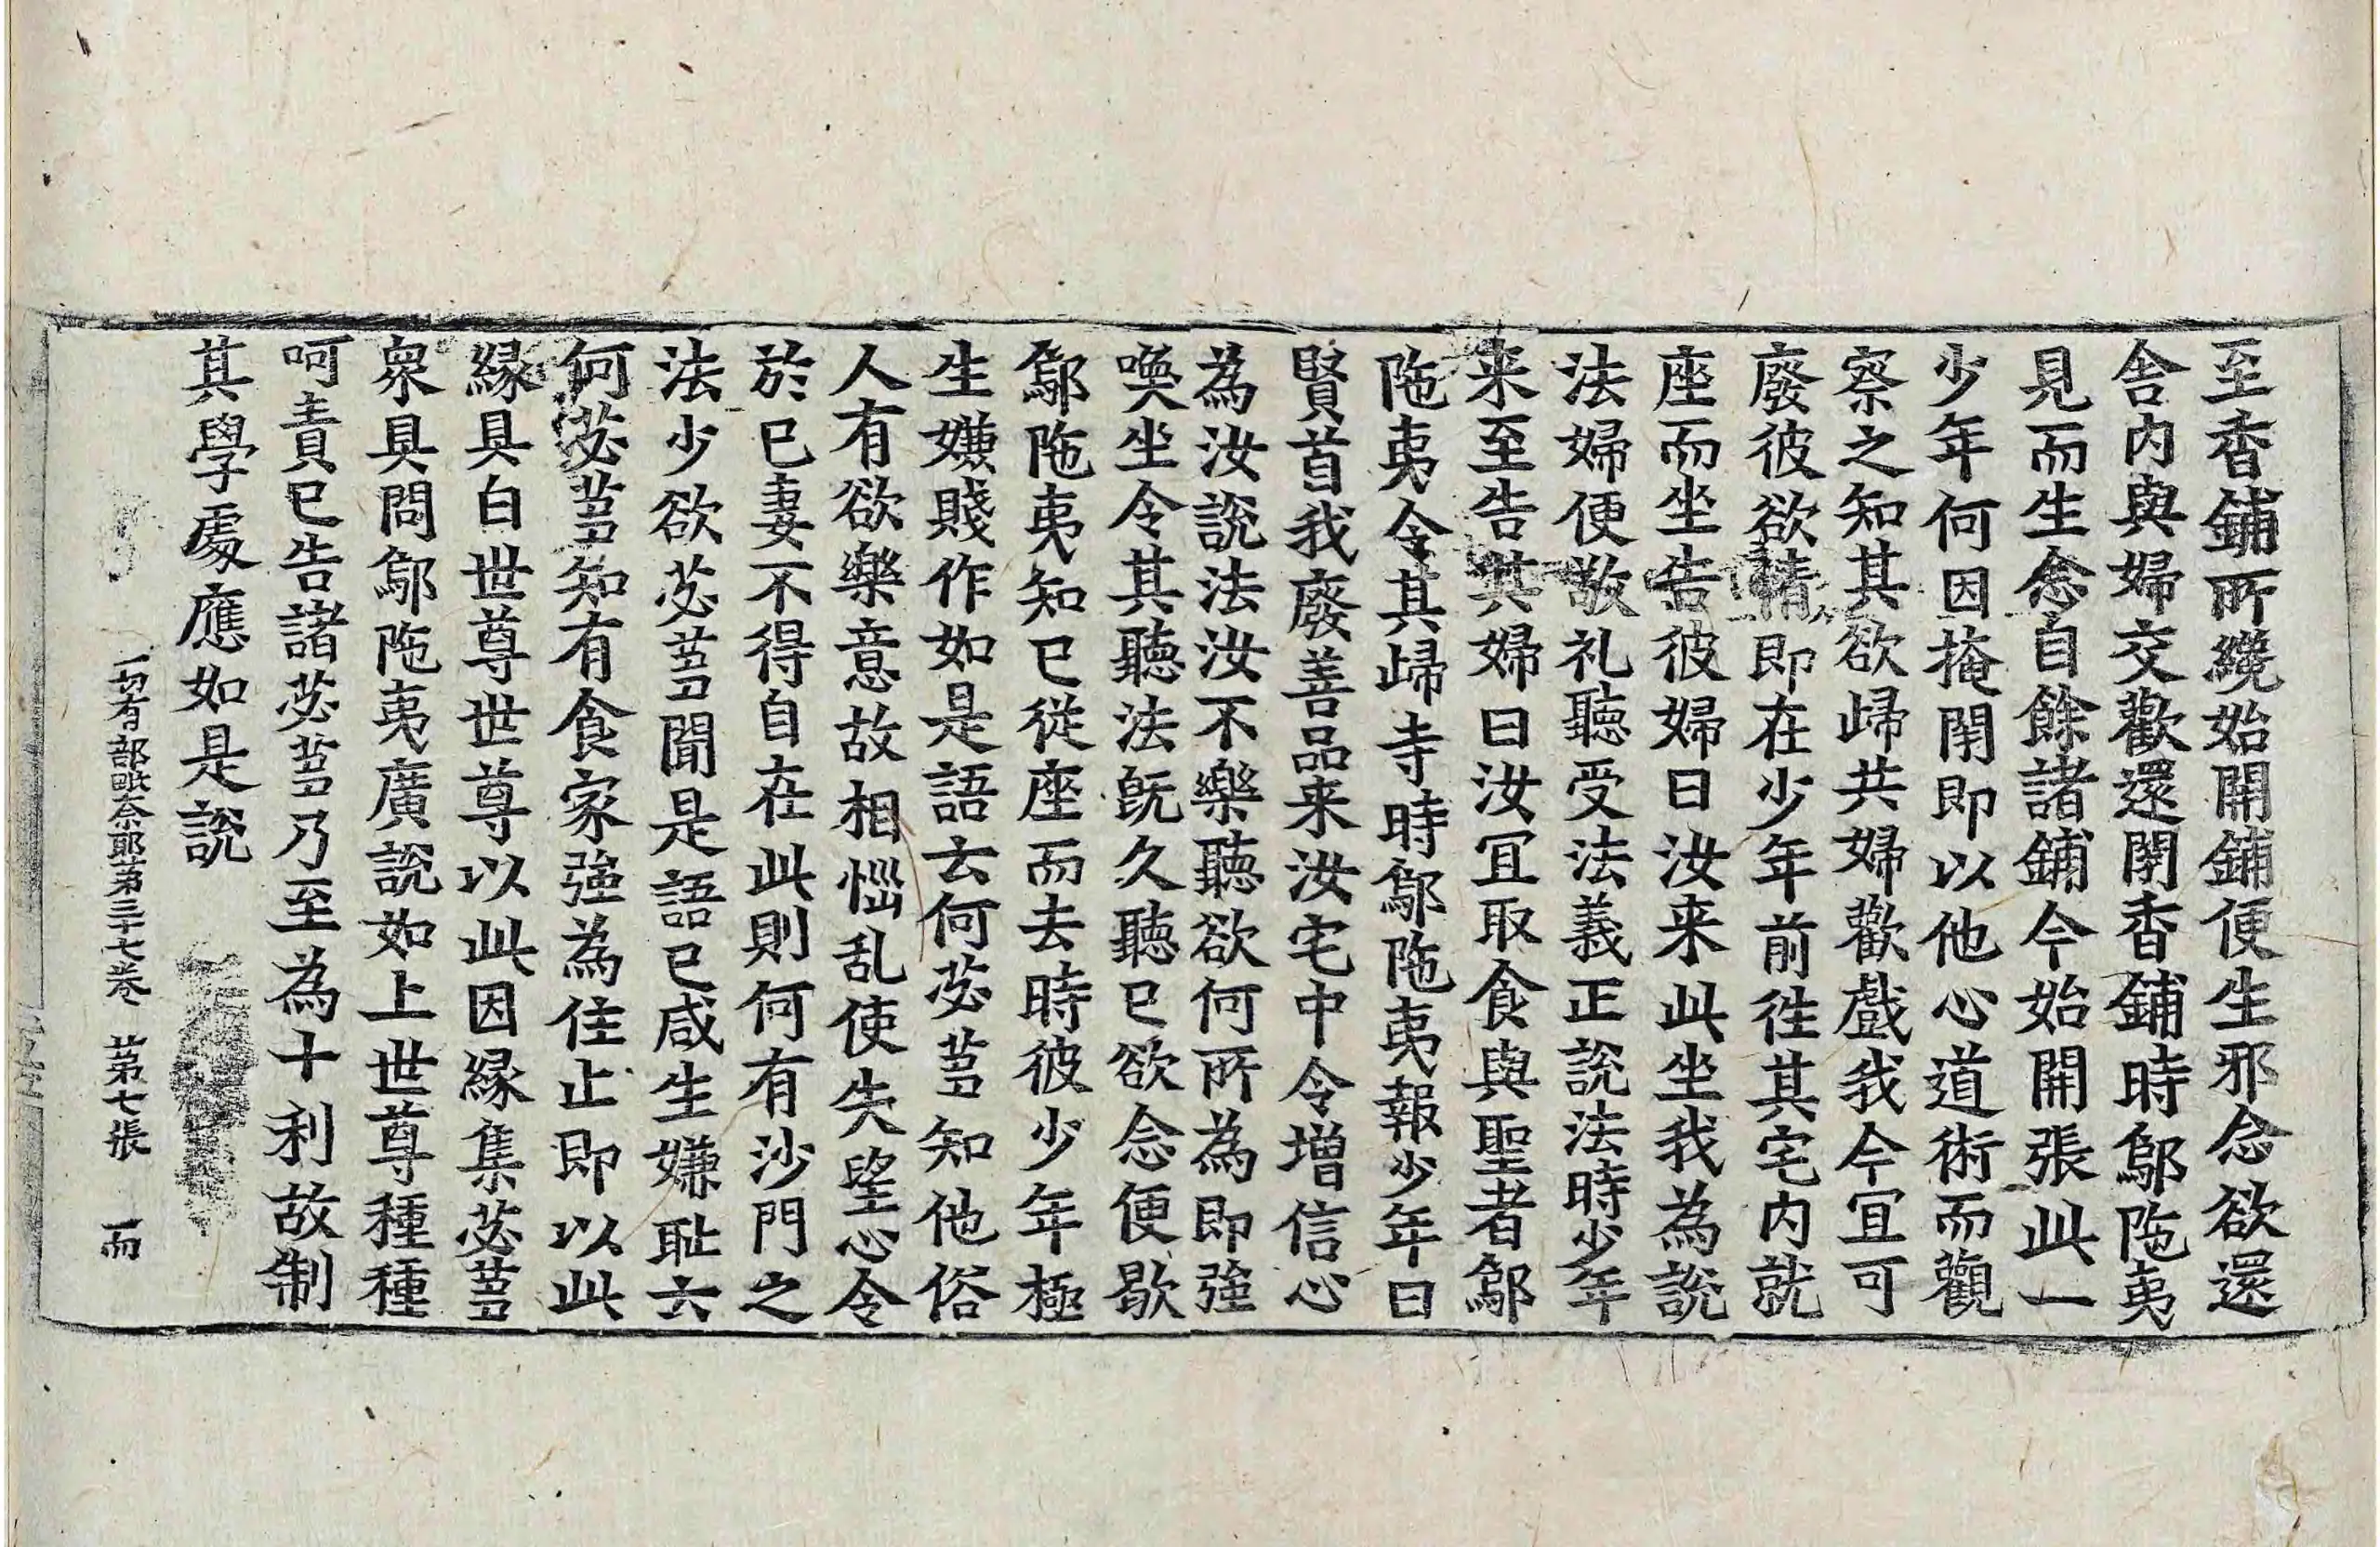 至香鋪所纔始開鋪便生邪念欲還
舍内與婦交歡還閇香鋪時鄔陁夷
見而生念自餘諸鋪今始開張此一
少年何因掩閇即以他心道術而觀
察之知其欲歸共婦歡戲我今冝可
廢彼欲情即在少年前徃其宅内就
座而坐告彼婦曰汝来此坐我為説
法婦便敬礼聽受法義正説法時少年
来至告其婦曰汝冝取食與聖者鄔
陁夷令其歸寺時鄔陁夷報少年曰
賢首我廢善品来汝宅中令增信心
為汝説法汝不樂聽欲何所為即強
喚坐令其聽法旣久聽已欲念便歇
鄔陁夷知已從座而去時彼少年極
生嫌賤作如是語云何苾芻知他俗
人有欲樂意故相惱乱使失望心令
於已妻不得自在此則何有沙門之
法少欲苾芻聞是語已咸生嫌耻云
何苾芻知有食家強為住止即以此
緣具白世尊世尊以此因緣集苾芻
衆具問鄔陁夷廣説如上世尊種種
呵責已告諸苾芻乃至為十利故制
其學處應如是説
一切有部毗奈耶第三十七卷　第七張　而